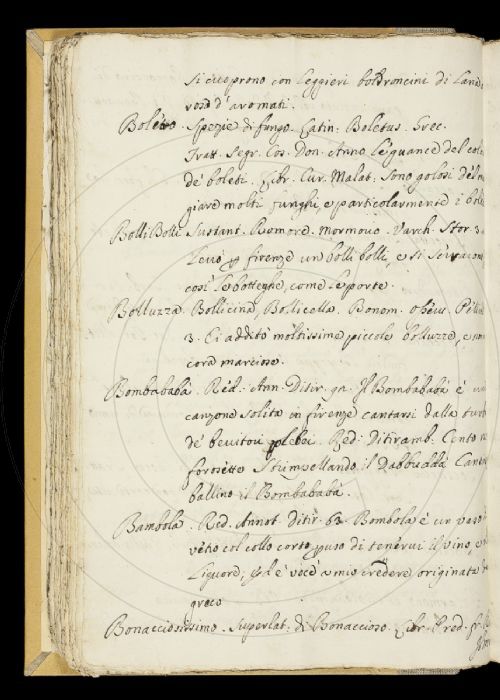 si cuoprono con leggieri boldroncini di Land
roso d'aromati.
Boleto. Spezie di fungo. Latin. Boletus. Grec.
Tratt. Segr. Cos. Don. Anno le guance del col
de' boleti. Libr. Cur. Malat. Sono golosi del m
giare molti funghi, e particolarmente i bole
BolliBolli Sustant. Romore. Mormorio. Varch. Stor. 3.
Levò firenze un bolli bolli, e si serraron
così le botteghe, come le porte.
Bolluzza. Bollicina, Bollicella. Bonom.
3. Ci additò moltissime piccole bolluzze, e non
cora marciose.
Bombababà. Red. Ann. Ditir. Il Bombababà è una
canzone solita in firenze cantarsi dalla turb
de' bevitori plebei. Red. Ditiramb. Cento
forosette Strimpellando il Dabbuddà Cant
ballino il Bombababà.
Bombola. Red. Annot. Ditir. 63. Bombola è un vaso
vetro col collo corto, uso di tenervi il vino, e
Liquore; ed è voce a mio credere originata
greco
Bonacciosissimo. Superlat. di Bonaccioso. Libr. Pred.